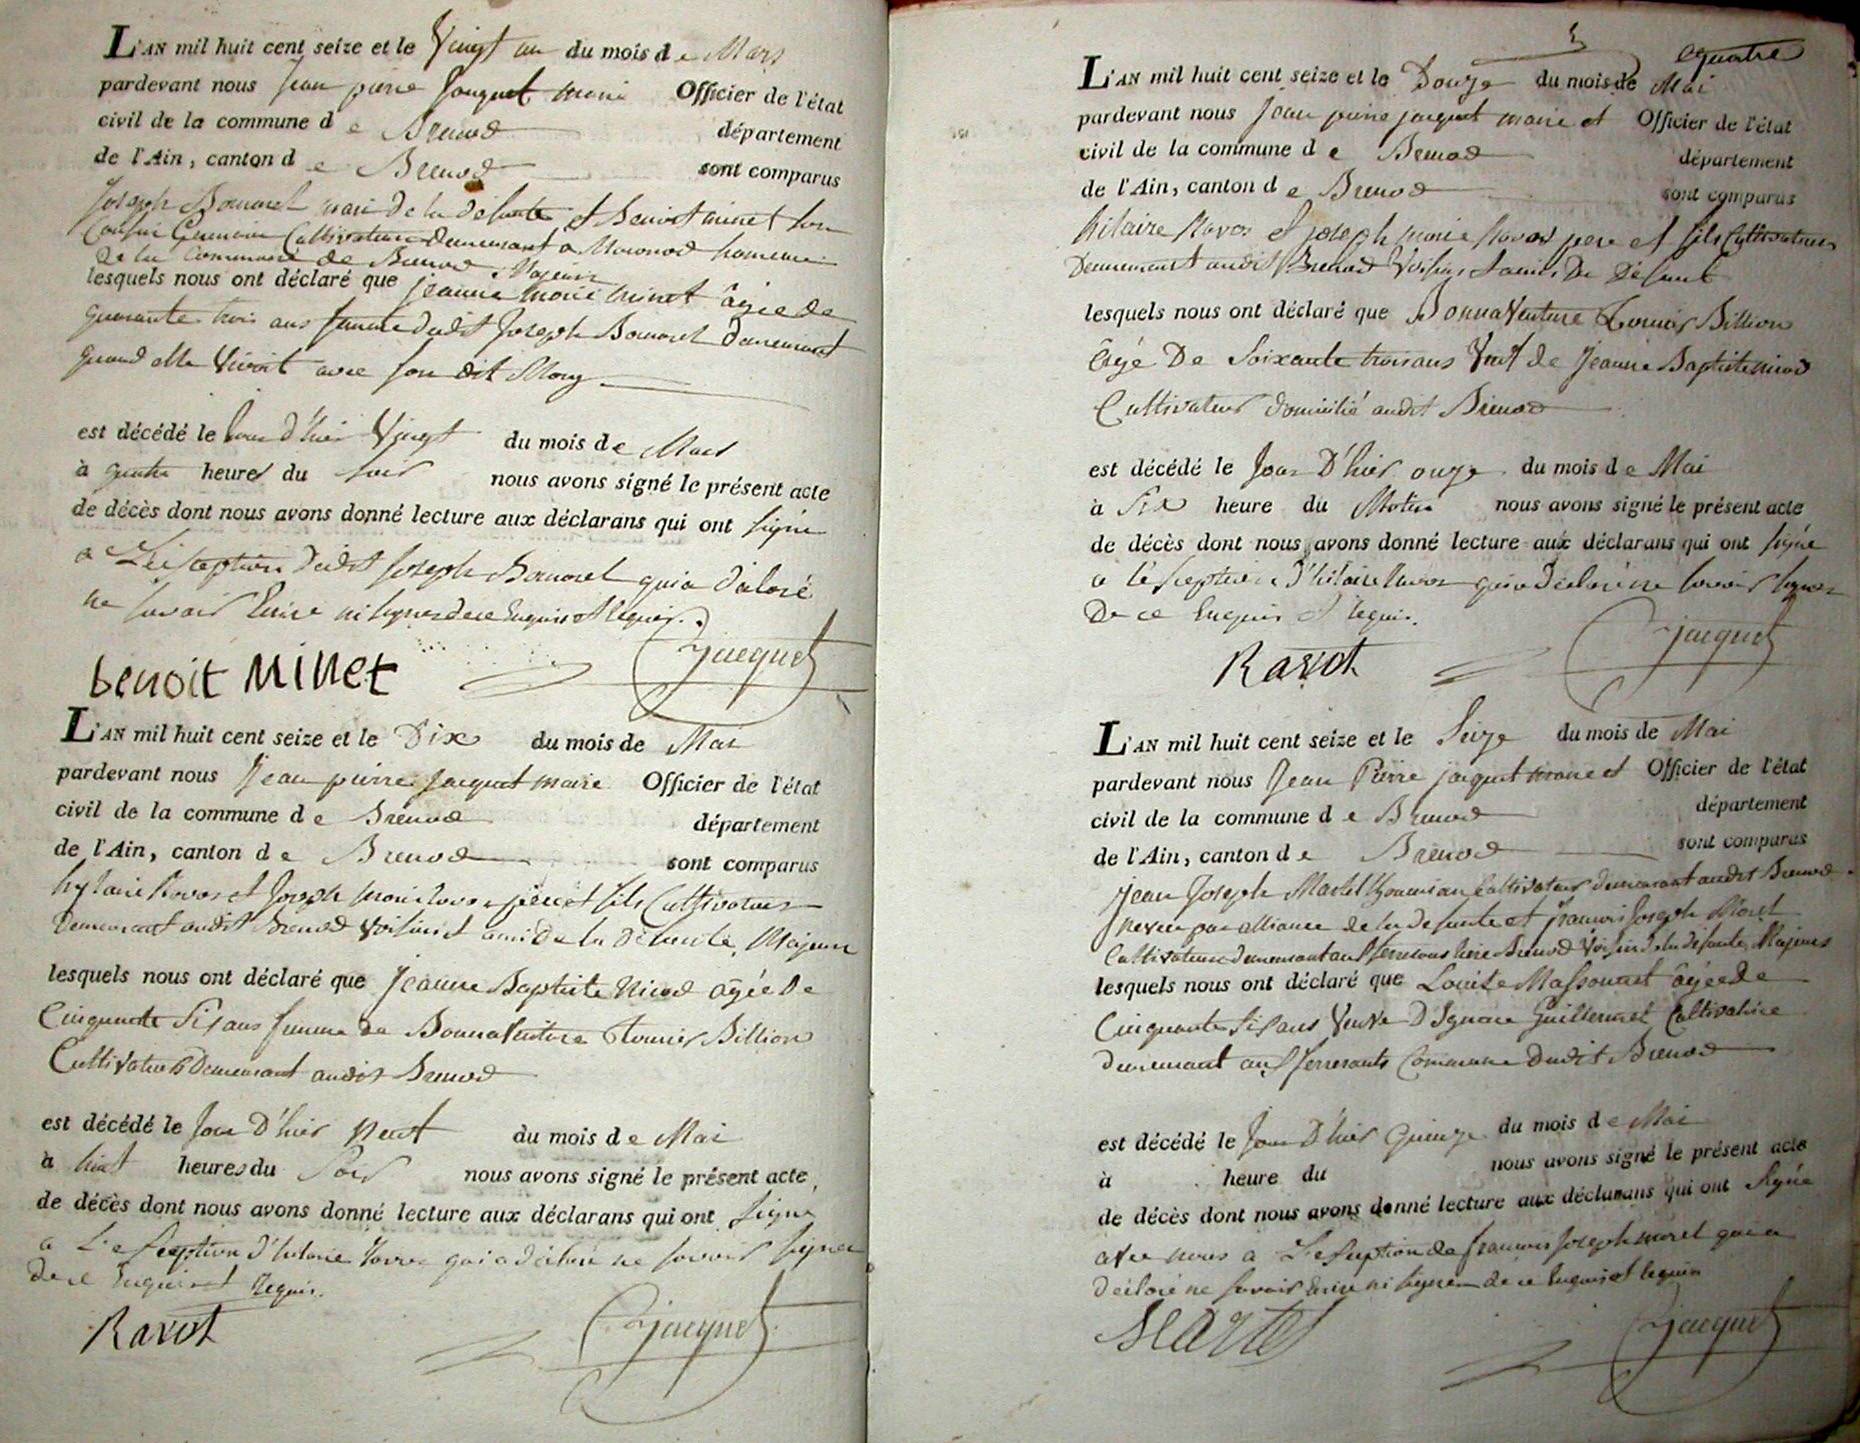 L'AN mil huit cent seize et le Vingt un du mois de Mars
pardevant nous Jean pierre Jacquet maire Officier de l'état
civil de la commune de Brenod département
de l'Ain, canton de Brenod sont comparus
Joseph Bonnorel mari de la défunte et Benoit minet son
Cousin Germain Cultivateurs demeurant a Maconod hameau
De la Commune de Brenod Majeurs
lesquels nous ont déclaré que jeanne marie minet âgée de
quarante trois ans femme dudit Joseph Bonnorel demeurant
quand elle Vivoit avec son dit Mary
est décédé le jour d'hier Vingt du mois de Mars
à quatre heures du soir nous avons signé le présent acte
de décès dont nous avons donné lecture aux déclarans qui ont signé
a L'exseption dudit joseph Bonnorel qui a déclaré
ne savoir Ecrire ni signer de ce Enquis et Requis.
benoit Minet Jacquet
L'AN mil huit cent seize et le Dix du mois de Mai
pardevant nous Jean pierre Jacquet maire Officier de l'état
civil de la commune de Brenod département
de l'Ain, canton de Brenod sont comparus
hylaire Ravot et Joseph marie Ravot père et fils Cultivateurs
Demeurant audit Brenod Voisins et amis De la Défunte Majeurs
lesquels nous ont déclaré que Jeanne Baptiste Nicod agée De
Cinquante Six ans femme de Bonnaventure Tournier Billion
Cultivateur Demeurant audit Brenod
est décédé le Jour D'hier Neuf du mois de Mai
à huit heures du Soir nous avons signé le présent acte
de décès dont nous avons donné lecture aux déclarans qui ont signé
a L'exseption d'hilaire Ravot qui a déclaré ne savoir signer
De ce Enquis et Requis.
Ravot Jacquet
quatre
L'AN mil huit cent seize et le Douze du mois de Mai
pardevant nous Jean pierre jacquet maire et Officier de l'état
civil de la commune de Brenod département
de l'Ain, canton de Brenod sont comparus
hilaire Ravot et joseph marie Ravot pere et fils Cultivateurs
Demeurant audit Brenod Voisins & amis Du Défunt
lesquels nous ont déclaré que BonnaVenture Tournier Billion
âgé De Soixante trois ans Veuf de Jeanne Baptiste nicod
Cultivateur domicilié audit Brenod
est décédé le Jour D'hier onze du mois de Mai
à Six heure du Matin nous avons signé le présent acte
de décès dont nous avons donné lecture aux déclarans qui ont signé
a l'exseption d'hilaire Ravot qui a déclaré ne savoir signer
De ce Enquis et Requis.
Ravot Jacquet
L'AN mil huit cent seize et le Seize du mois de Mai
pardevant nous Jean Pierre jacquet maire et Officier de l'état
civil de la commune de Brenod département
de l'Ain, canton de Brenod sont comparus
Jean Joseph Martel Cultivateur demeurant audit Brenod
Neveu par alliance de la défunte et françois Joseph Morel
Cultivateur demeurant Brenod Voisin de la défunte Majeurs
lesquels nous ont déclaré que Louise Massonnet âgée de
Cinquante Six ans Veuve D'Ignace Guillermet Cultivatrice
demeurant aux Commune dudit Brenod
est décédé le Jour D'hier Quinze du mois de Mai
à heure du nous avons signé le présent acte
de décès dont nous avons donné lecture aux déclarans qui ont Signé
avec nous a L'exseption de françois joseph morel qui a
déclaré ne savoir Ecrire ni signer de ce Enquis et Requis
Martel Jacquet